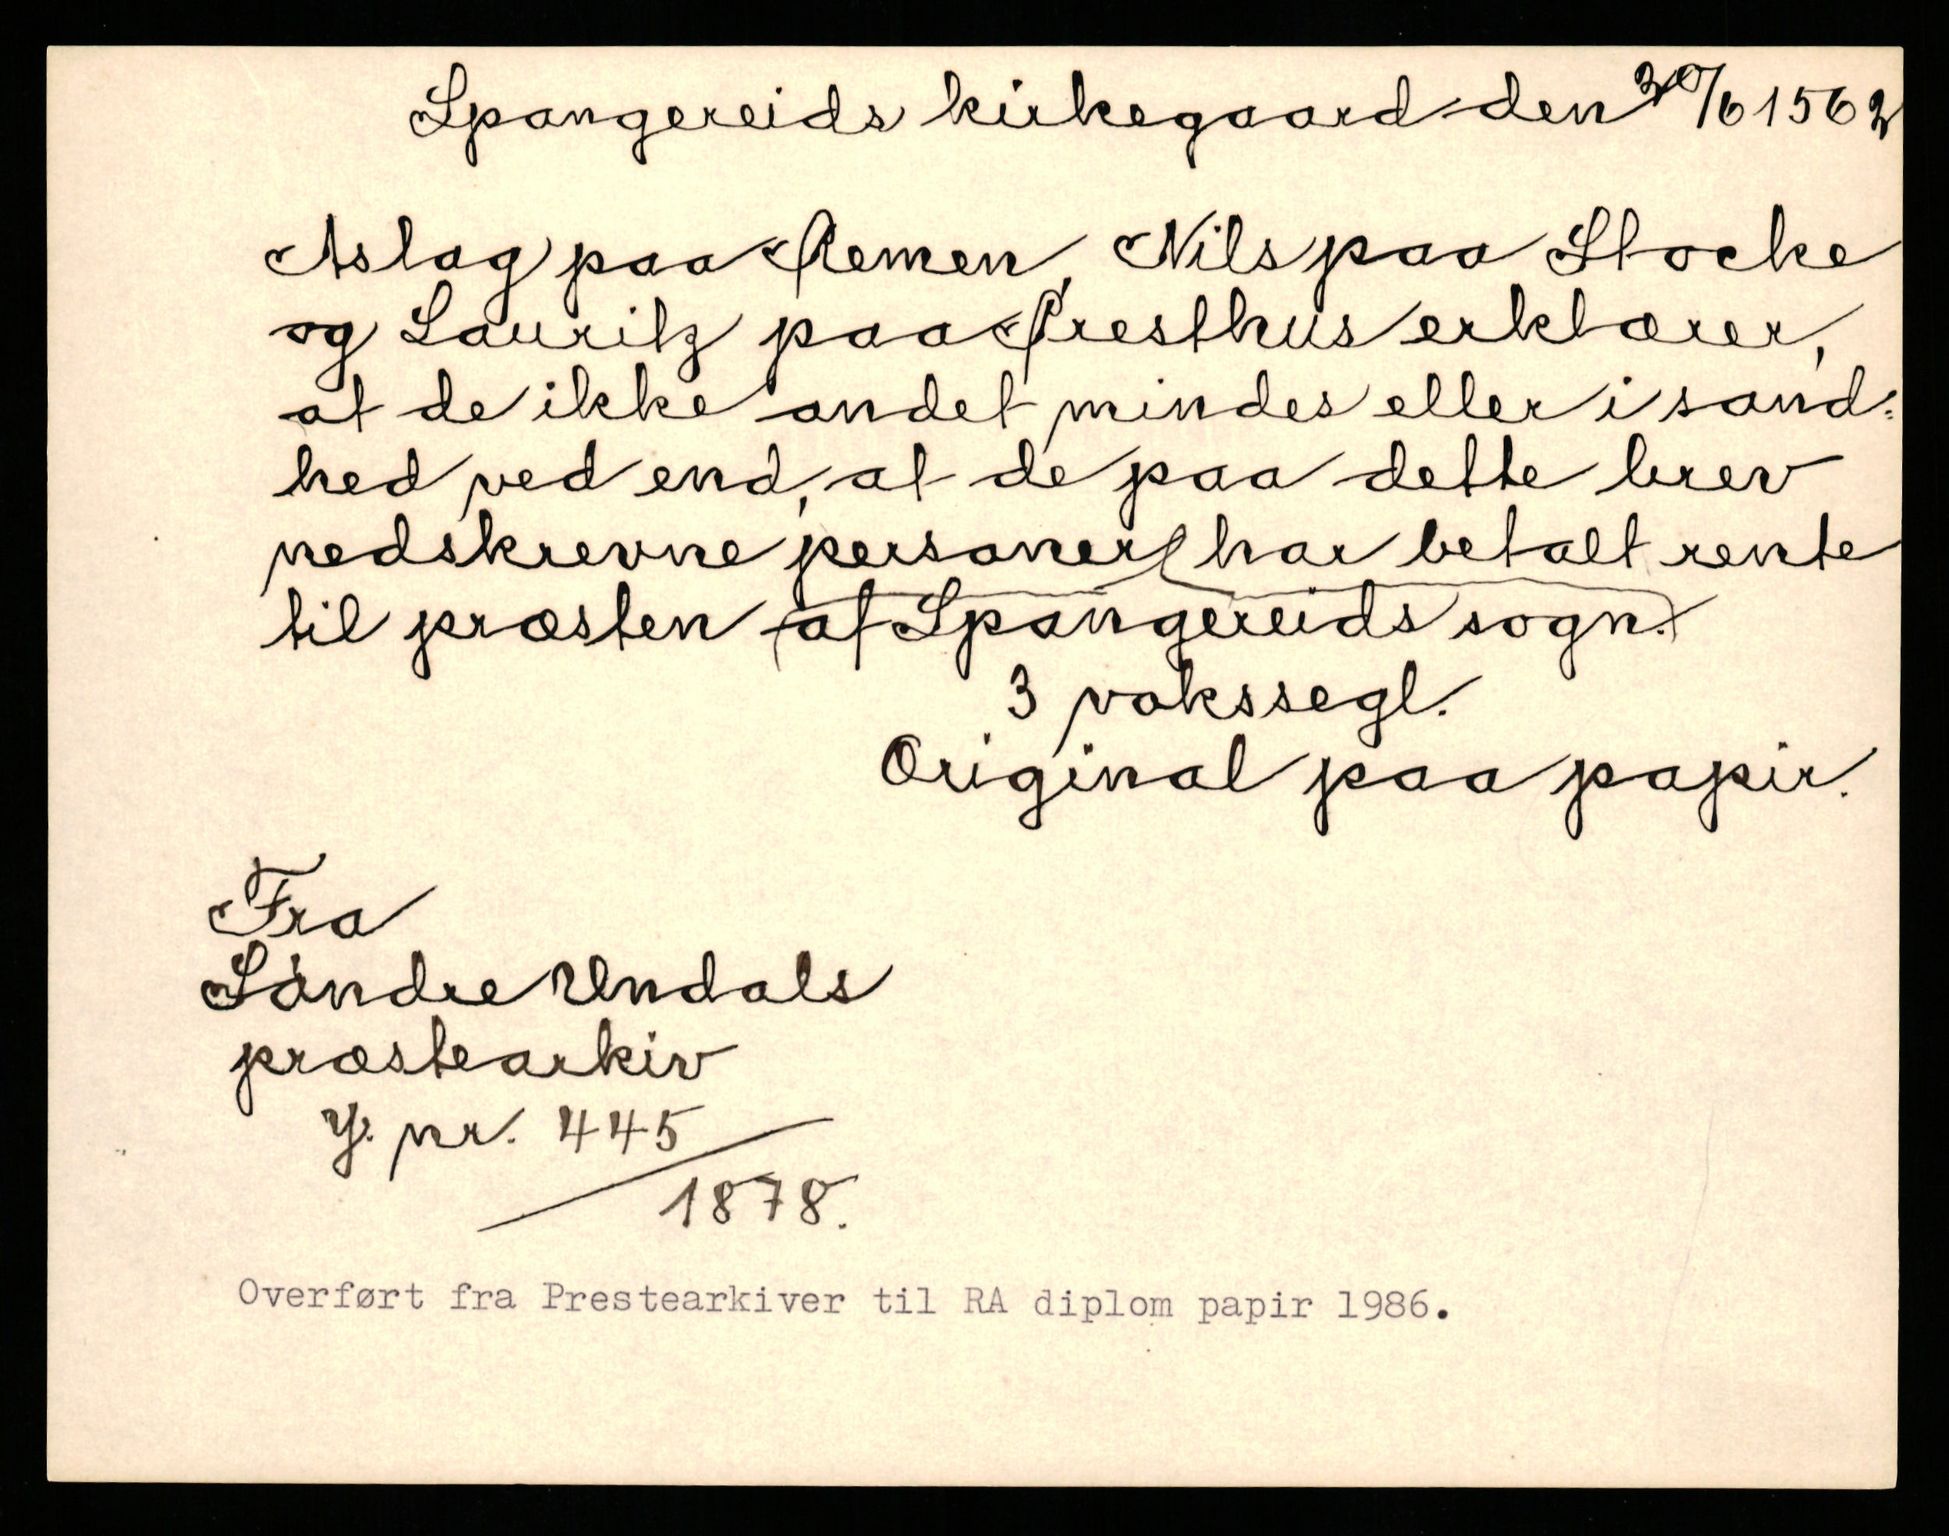 Spangereids kirkegaard den 30/6 1562
Aslag paa Remen, Nils paa Stocke
og Lauritz paa Presthus erklærer,
at de ikke andet mindes eller i sand:
hed ved end, at de paa dette brev
nedskrevne personer har betalt rente
til præsten (af Spangereids sogn.)
3 vokssegl.
Original paa papir.
Fra
Söndre Undals
præstearkiv
J. nr. 445
1878.
Overført fra Prestearkiver til RA diplom papir 1986.